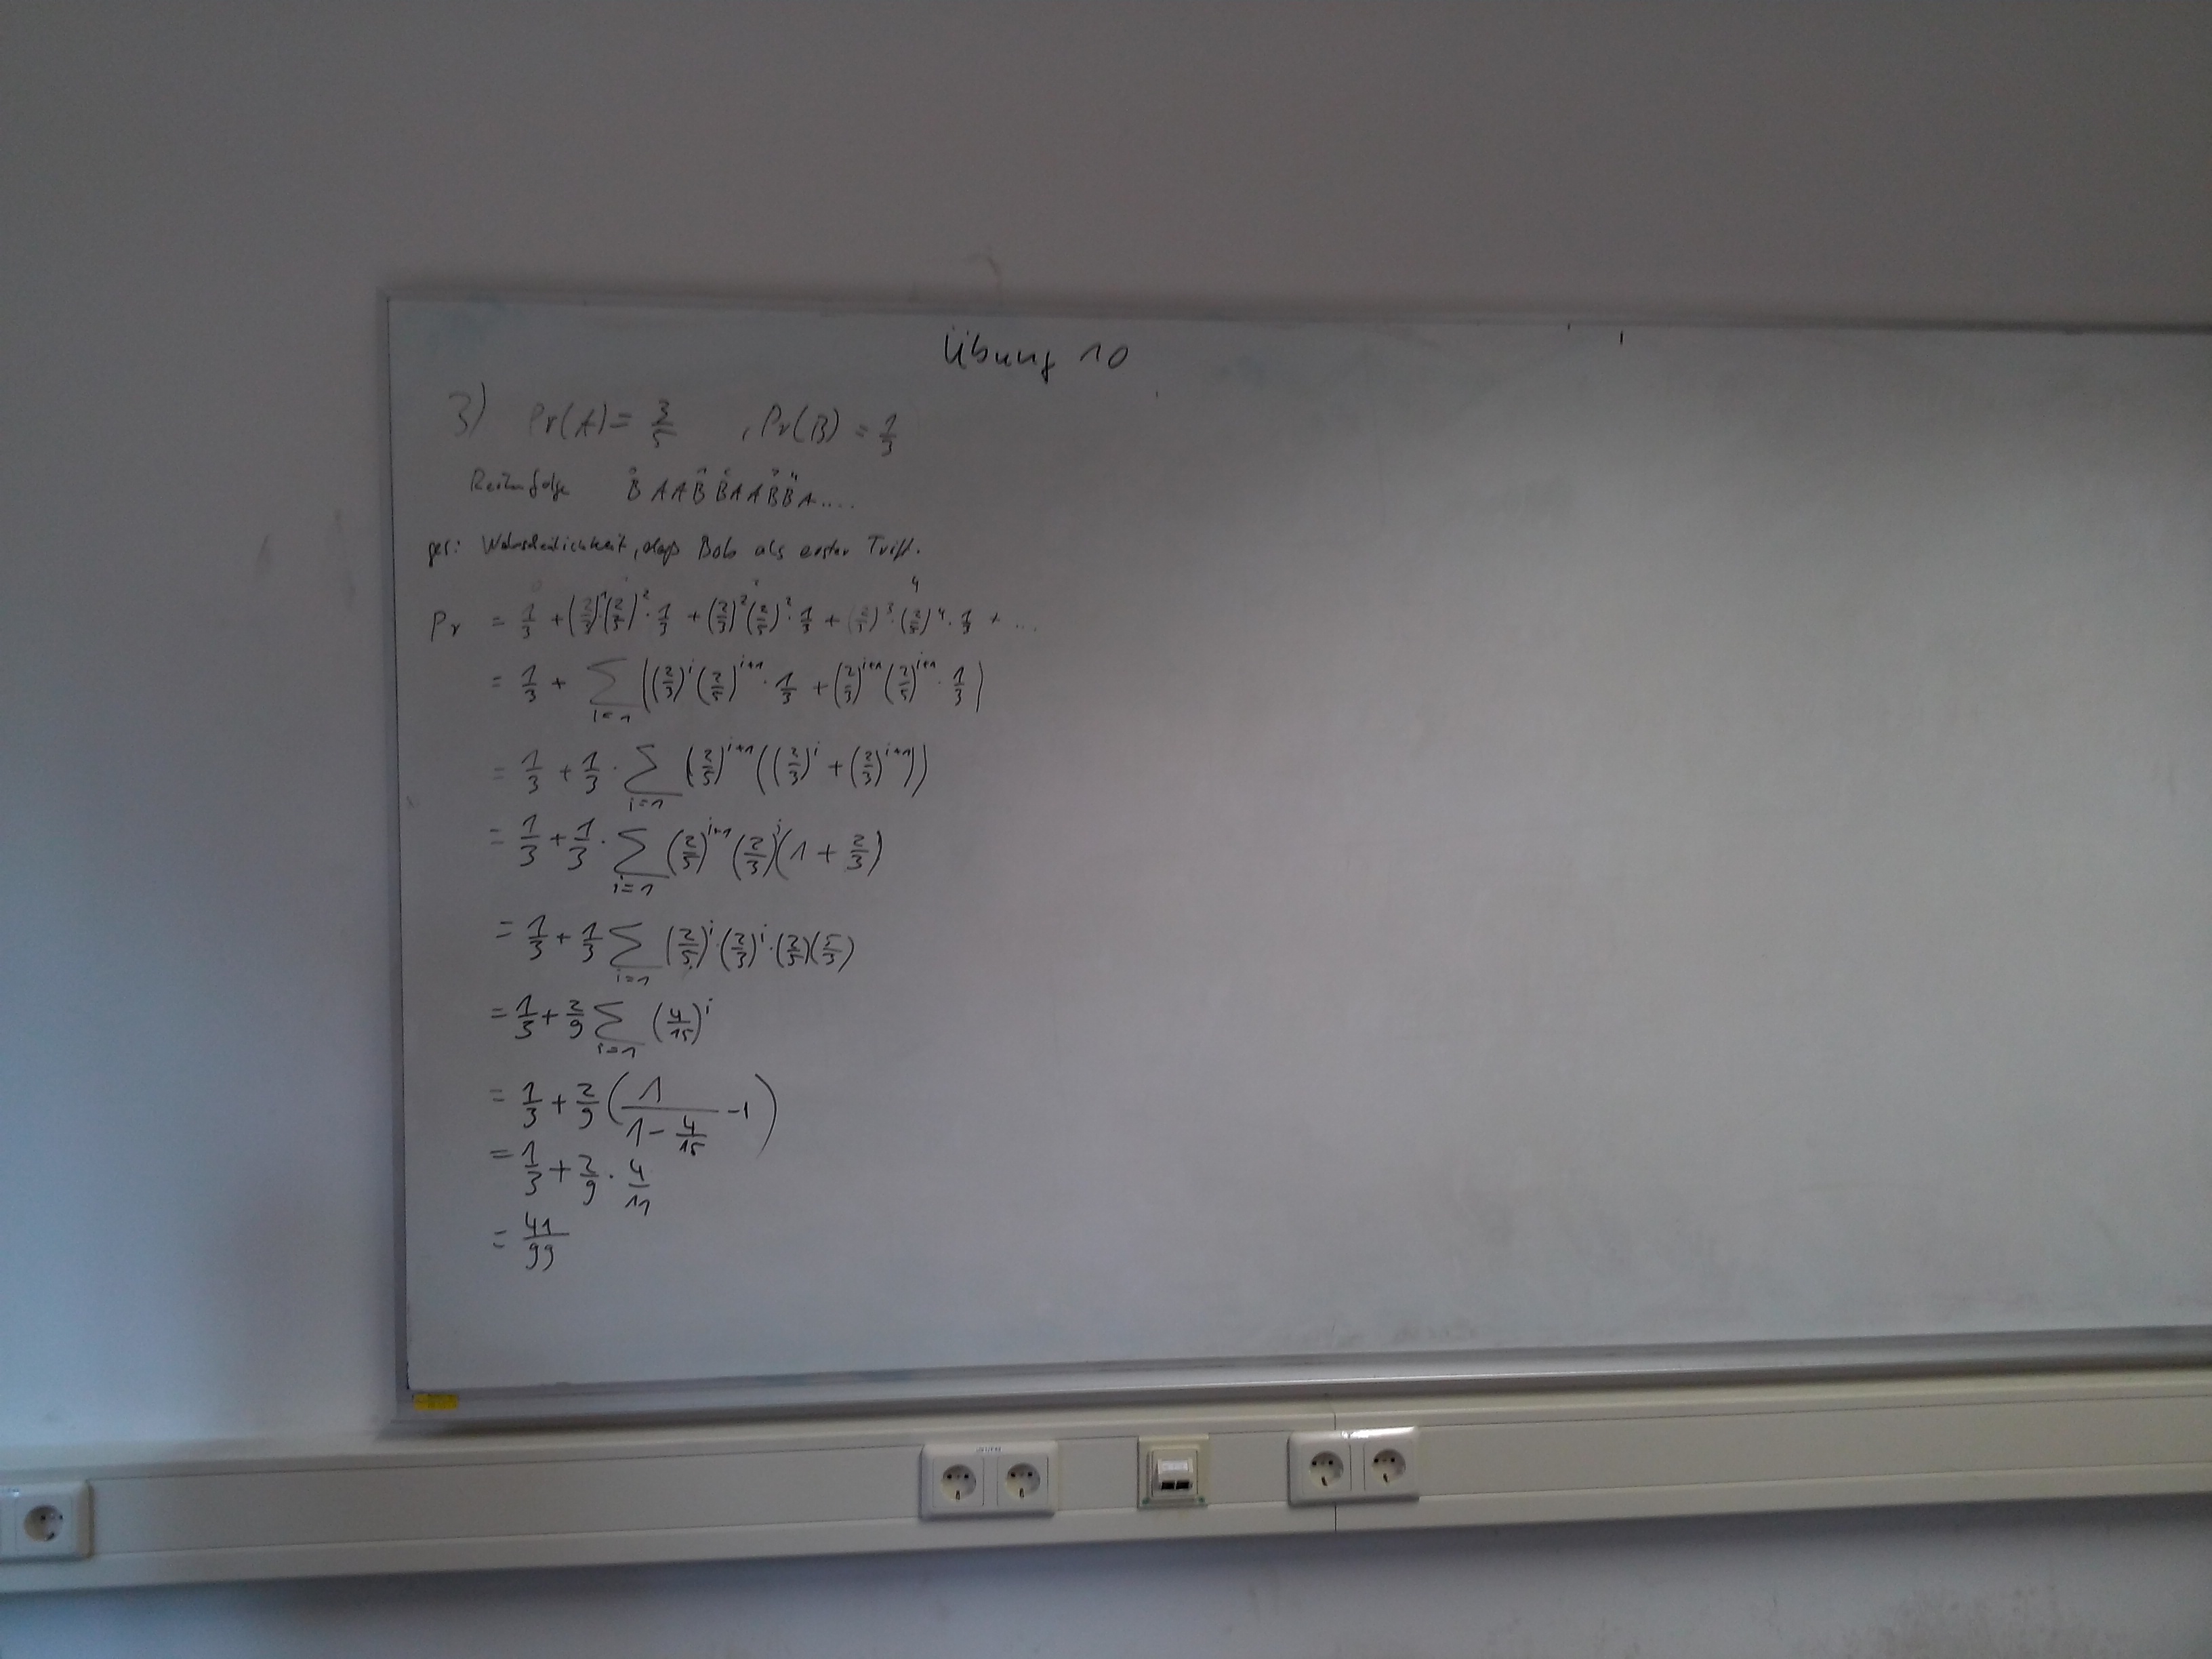 Übung 10
3) Pr(A) = 3/5 , Pr(B) = 1/3
Reihenfolge B A A B B A A B B A ....
ges: Wahrscheinlichkeit, daß Bob als erster Trifft.
Pr = 1/3 + (2/3)^1 (2/5)^2 · 1/3 + (2/3)^2 (2/5)^2 · 1/3 + (2/3)^3 · (2/5)^4 · 1/3 + ...
= 1/3 + ∑_{i=1} ((2/3)^i (2/5)^{i+1} · 1/3 + (2/3)^{i+1} (2/5)^{i+1} · 1/3)
= 1/3 + 1/3 · ∑_{i=1} (2/5)^{i+1} ((2/3)^i + (2/3)^{i+1})
= 1/3 + 1/3 · ∑_{i=1} (2/5)^{i+1} (2/3)^i (1 + 2/3)
= 1/3 + 1/3 ∑_{i=1} (2/5)^i · (2/3)^i · (2/5)(5/3)
= 1/3 + 2/9 ∑_{i=1} (4/15)^i
= 1/3 + 2/9 (1/(1 - 4/15) - 1)
= 1/3 + 2/9 · 4/11
= 41/99